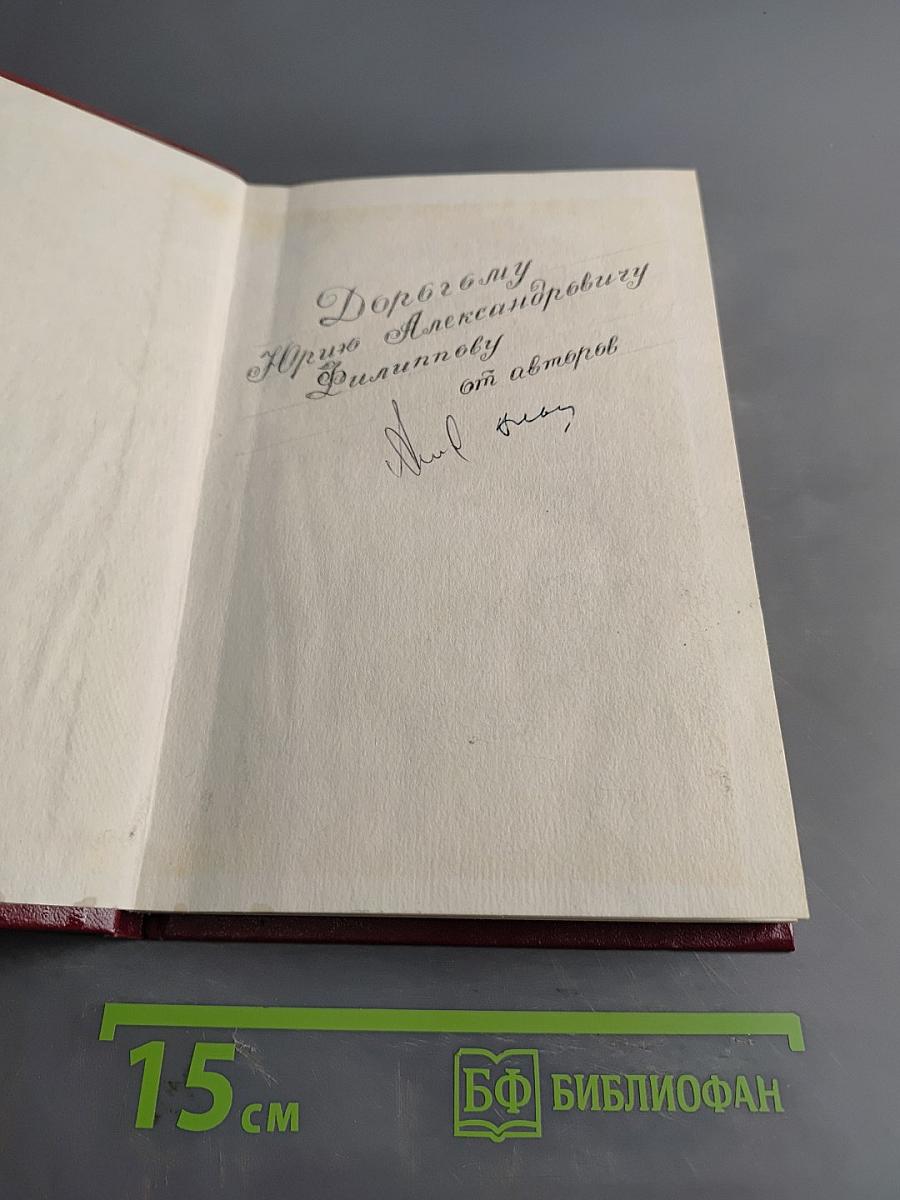 Дорогому
Юрию Александровичу
Филиппову
от авторов
15 см
БФ БИБЛИОФАН